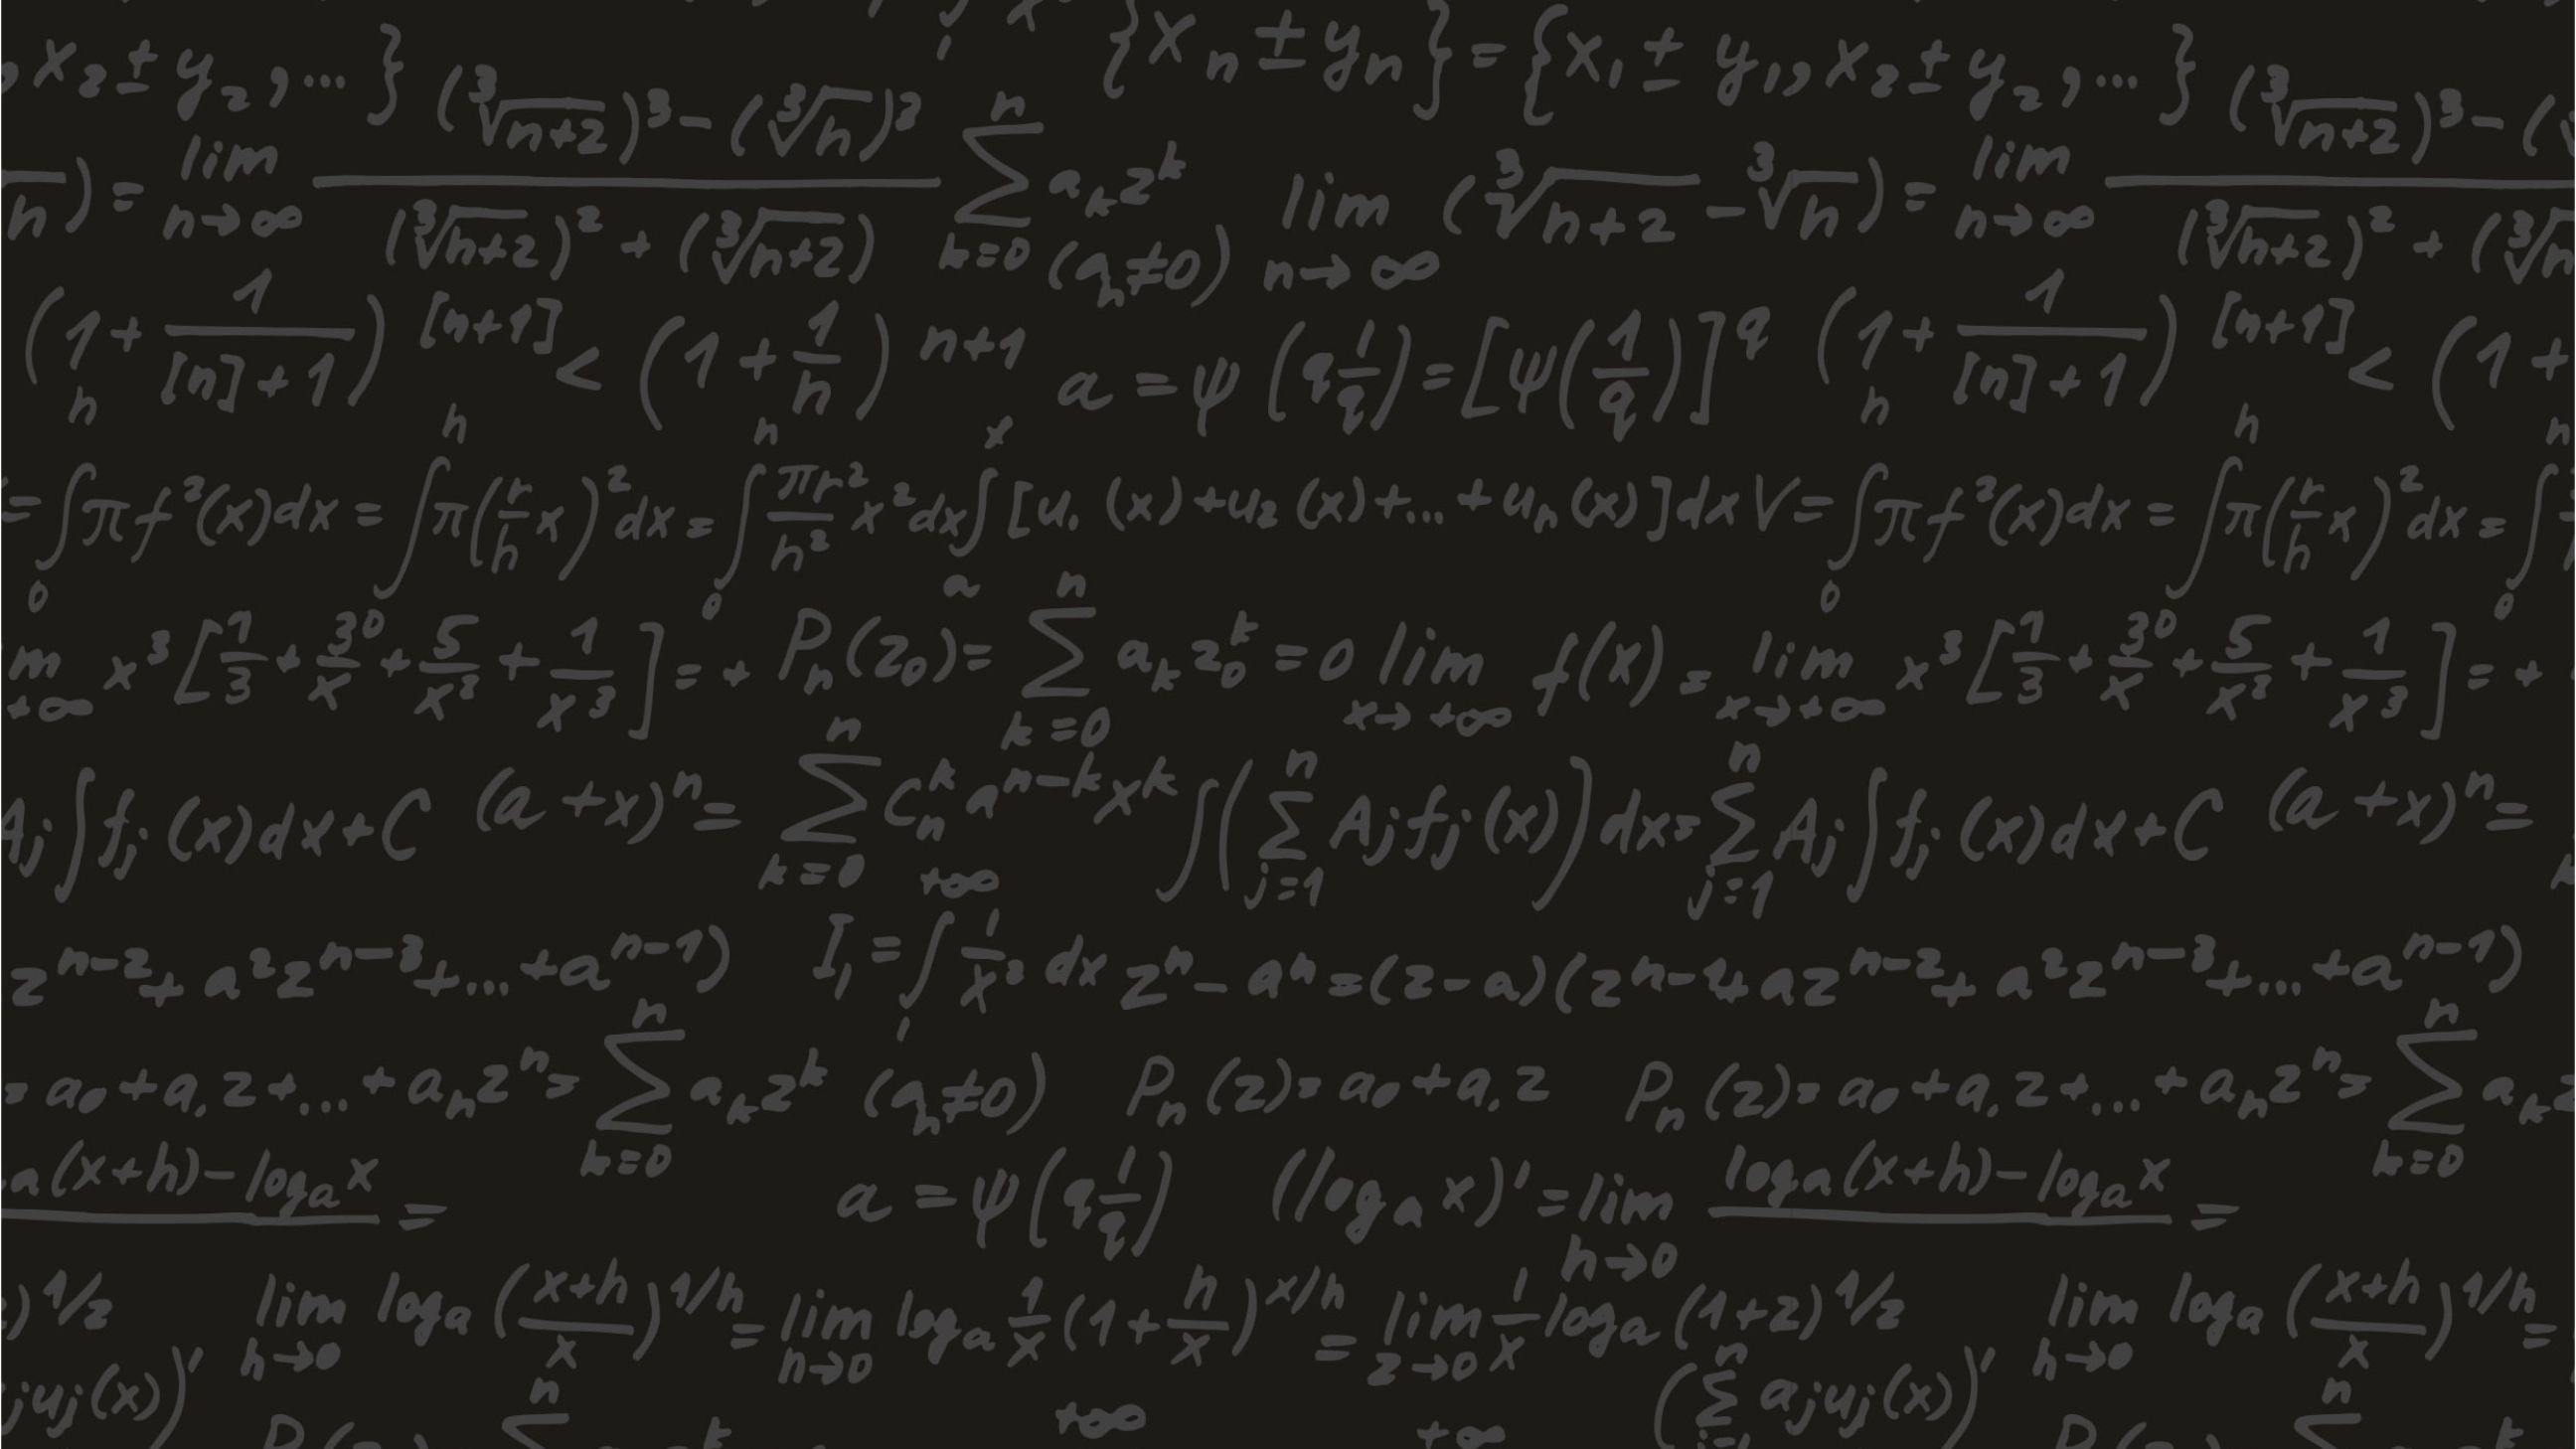 , x₂ ± y₂, ... } {xₙ ± yₙ} = {x₁ ± y₁, x₂ ± y₂, ... }
n) = lim n→∞ ((∛n+2)³ − (∛n)³) / ((∛n+2)² + (∛n+2)) ∑ k=0 n aₖzᵏ (aₙ≠0) lim n→∞ (∛n+2 − ∛n) = lim n→∞ ((∛n+2)³ − ( / ((∛n+2)² + (∛n
(1 + 1/([n]+1))^[n+1] < (1 + 1/n)^n+1 a = ψ(q 1/q) = [ψ(1/q)]^q (1 + 1/([n]+1))^[n+1] < (1 +
= ∫₀ʰ πf²(x)dx = ∫ʰ π(r/h x)²dx = ∫₀ʰ πr²/h² x²dx ∫ₐˣ [u₁(x)+u₂(x)+...+uₙ(x)]dx V = ∫₀ʰ πf²(x)dx = ∫ʰ π(r/h x)²dx = ∫₀ʰ
m +∞ x³[1/3 + 3⁰/x + 5/x² + 1/x³] = + Pₙ(z₀) = ∑ k=0 n aₖz₀ᵏ = 0 lim x→+∞ f(x) = lim x→+∞ x³[1/3 + 3⁰/x + 5/x² + 1/x³] = +
Aⱼ∫fⱼ(x)dx + C (a+x)ⁿ = ∑ k=0 n Cₙᵏ aⁿ⁻ᵏxᵏ ∫(∑ j=1 n Aⱼfⱼ(x))dx = ∑ j=1 n Aⱼ∫fⱼ(x)dx + C (a+x)ⁿ =
zⁿ⁻² + a²zⁿ⁻³ + ... + aⁿ⁻¹) I₁ = ∫₁^+∞ 1/x² dx zⁿ − aⁿ = (z−a)(zⁿ⁻¹ + azⁿ⁻² + a²zⁿ⁻³ + ... + aⁿ⁻¹)
= a₀ + a₁z + ... + aₙzⁿ = ∑ k=0 n aₖzᵏ (aₙ≠0) Pₙ(z) = a₀ + a₁z Pₙ(z) = a₀ + a₁z + ... + aₙzⁿ = ∑ k=0 n aₖz
a(x+h) − logₐx = a = ψ(q 1/q) (logₐx)' = lim h→0 (logₐ(x+h) − logₐx) / =
)^1/z lim h→0 logₐ((x+h)/x)^1/h = lim h→0 logₐ 1/x (1 + h/x)^x/h = lim z→0 1/x logₐ(1+z)^1/z lim h→0 logₐ((x+h)/x)^1/h =
ⱼuⱼ(x))' n +∞ +∞ (∑ n aⱼuⱼ(x))' n